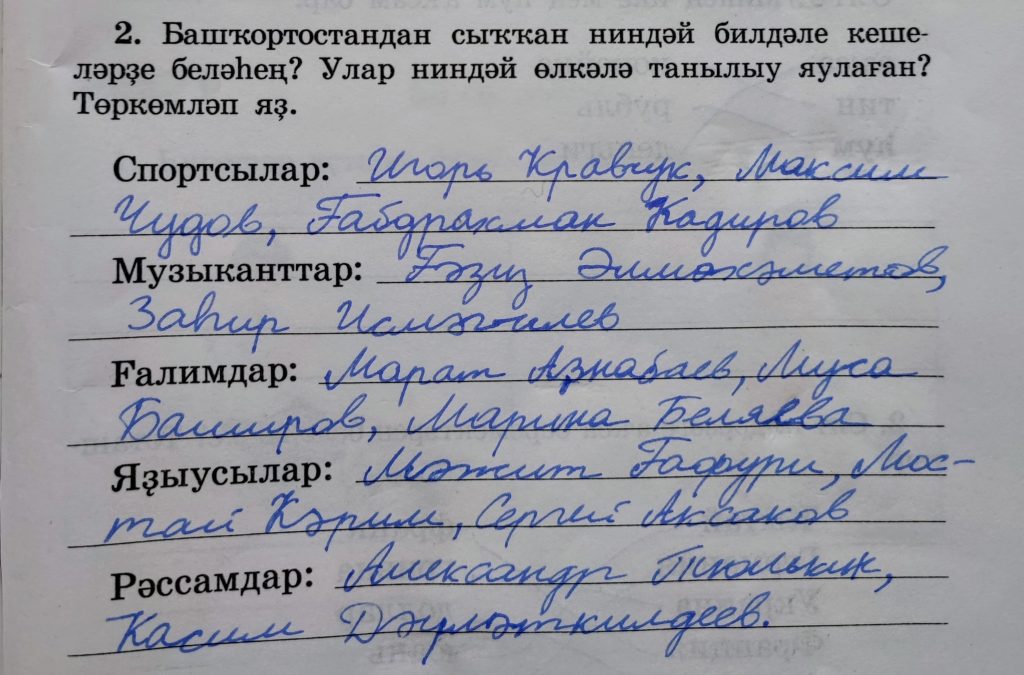 2. Башҡортостандан сыҡҡан ниндәй билдәле кеше-
ләрҙе беләһең? Улар ниндәй өлкәлә танылыу яулаған?
Төркөмләп яҙ.
Спортсылар: Игорь Кравчук, Максим
Чудов, Ғабдрахман Кадиров
Музыканттар: Ғәзиз Әлмөхәметов,
Заһир Исмәғилев
Ғалимдар: Марат Аҙнабаев, Муса
Баширов, Марина Беляева
Яҙыусылар: Мәжит Ғафури, Мос-
тай Кәрим, Сергей Аксаков
Рәссамдар: Александр Тюлькин,
Касим Дәүләткилдеев.